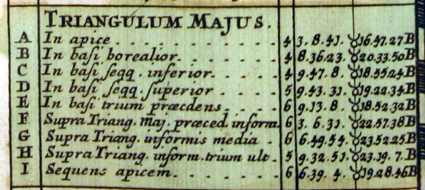 TRIANGULUM MAJUS.
A In apice 4 3.8.41. ♉ 16.47.27 B
B In basi borealior. 4 8.36.23. ♉ 20.33.50 B
C In basi seqq. inferior 4 9.47.8. ♉ 18.55.24 B
D In basi seqq. superior 5 9.43.31. ♉ 19.22.34 B
E In basi trium præcdens 6 9.13.8. ♉ 18.52.32 B
F Supra Triang. maj. præced. inform. 6 3.6.31. ♉ 22.57.38 B
G Supra Triang. informis media 6 6.49.54. ♉ 23.52.25 B
H Supra Triang. inform. trium ult. 5 9.32.51. ♉ 23.19.7. B
I Sequens apicem 6 6.39.4. ♉ 19.28.46 B